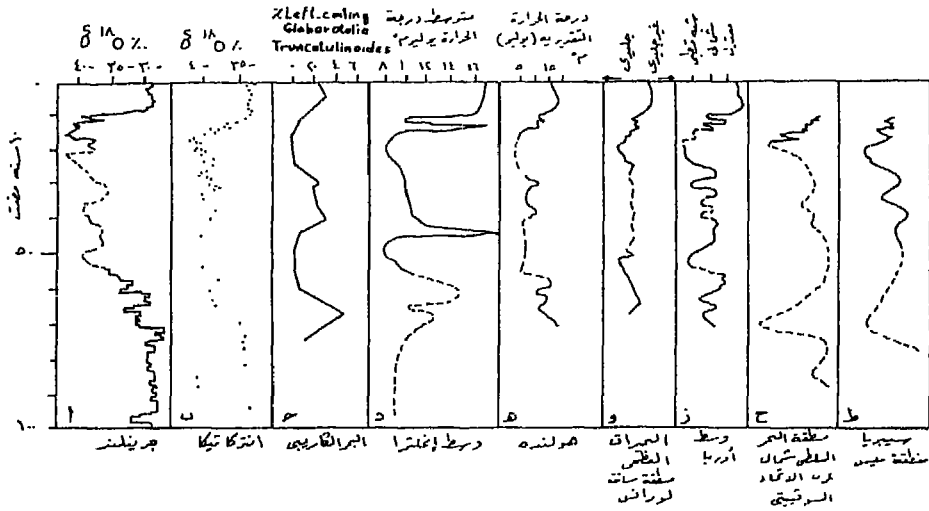 δ ¹⁸O ‰
٤٠٠ ٣٥٠ ٣٠٠
δ ¹⁸O ‰
٤٠ ٣٥٠
% Left-coiling
Globorotalia
Truncatulinoides
٠ ٢٠ ٤ ٦
متوسط درجة
الحرارة يوليو م°
٨ ١ ١٢ ١٤ ١٦
درجة الحرارة
التقديريه (يوليو)
م°
٥ ١٥
جليدى
غير جليدى
شبه قطبى
شمالى
٥٠
١٠٠
أ
ب
ج
د
ه
و
ز
ح
ط
جرينلند
انتركاتيكا
البحر الكاريبى
وسط إنجلترا
هولنده
البحيرات
العظمى
منطقة سانت
لورانس
وسط
أوربا
منطقة البحر
البلطى شمال
غرب الاتحاد
السوفييتى
سيبريا
منطقة